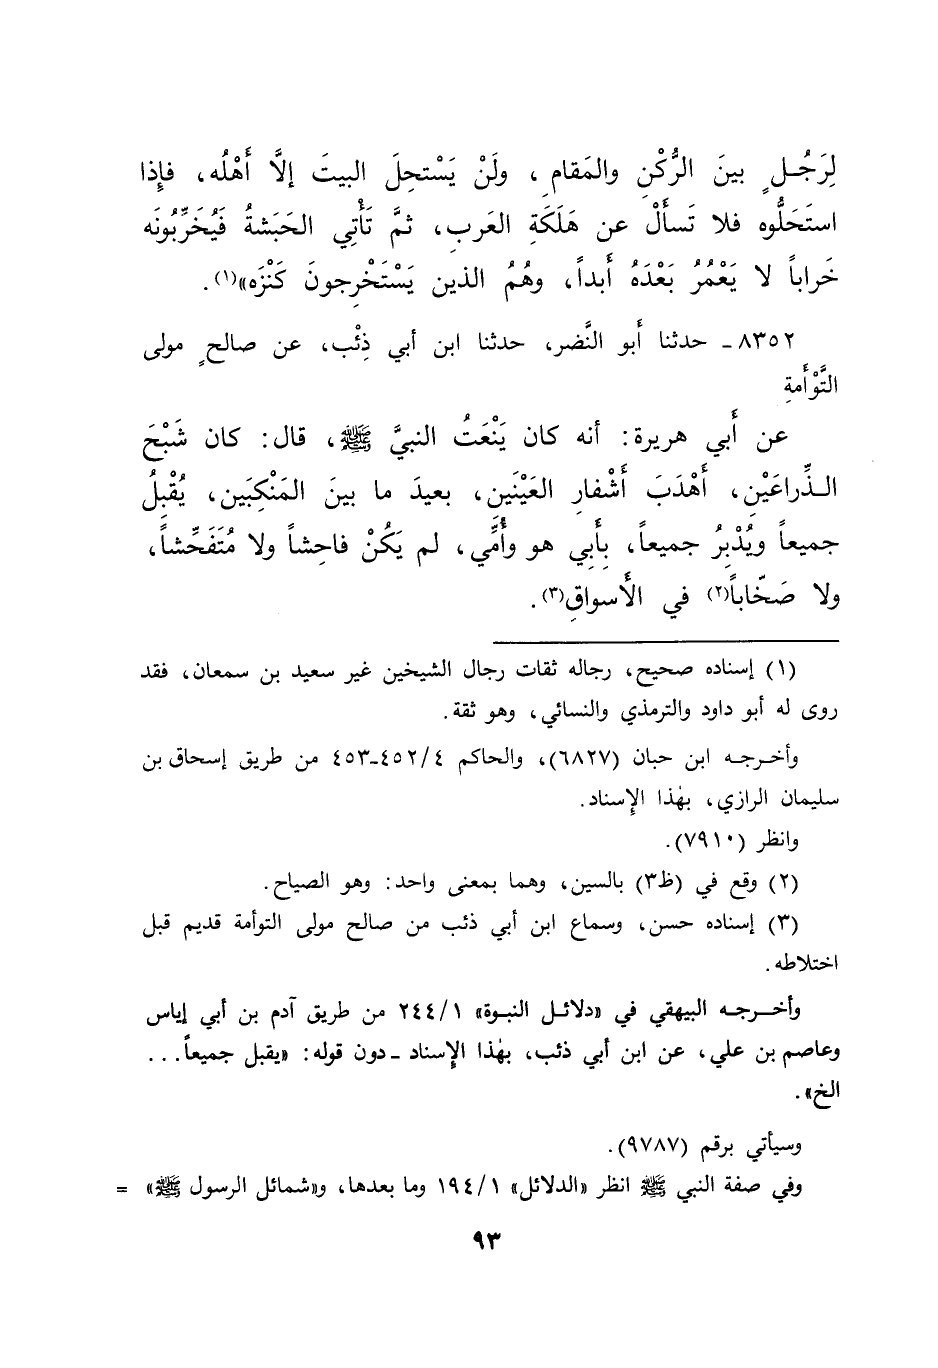 لِرَجُـلٍ بينَ الرُّكْنِ والمَقامِ، ولَنْ يَسْتحِلَ البيتَ إلَّا أَهْلُه، فإِذا
استَحَلُّوه فلا تَسأَلْ عن هَلَكَةِ العَربِ، ثمَّ تَأْتِي الحَبَشةُ فَيُخَرِّبُونَه
خَراباً لا يَعْمُرُ بَعْدَهُ أَبداً، وهُمُ الذين يَسْتَخْرِجونَ كَنْزَه»(١).
٨٣٥٢ ـ حدثنا أَبو النَّضر، حدثنا ابن أبي ذِئْب، عن صالحٍ مولى
التَّوْأَمةِ
عن أَبي هريرة: أنه كان يَنْعَتُ النبيَّ ﷺ، قال: كان شَبْحَ
الـذِّراعَيْنِ، أَهْدَبَ أَشْفارِ العَيْنَينِ، بعيدَ ما بينَ المَنْكِبَين، يُقْبِلُ
جميعاً ويُدْبِرُ جميعاً، بِأَبِي هو وأُمِّي، لم يَكُنْ فاحِشاً ولا مُتَفَحِّشاً،
ولا صَخّاباً(٢) في الأَسواقِ(٣).
(١) إسناده صحيح، رجاله ثقات رجال الشيخين غير سعيد بن سمعان، فقد
روى له أبو داود والترمذي والنسائي، وهو ثقة.
وأخـرجـه ابن حبان (٦٨٢٧)، والحاكم ٤/ ٤٥٢ـ٤٥٣ من طريق إسحاق بن
سليمان الرازي، بهٰذا الإسناد.
وانظر (٧٩١٠).
(٢) وقع في (ظ٣) بالسين، وهما بمعنى واحد: وهو الصياح.
(٣) إسناده حسن، وسماع ابن أبي ذئب من صالح مولى التوأمة قديم قبل
اختلاطه.
وأخـرجـه البيهقي في «دلائـل النبـوة» ١/ ٢٤٤ من طريق آدم بن أبي إياس
وعاصم بن علي، عن ابن أبي ذئب، بهٰذا الإسناد ـ دون قوله: «يقبل جميعاً...
الخ».
وسيأتي برقم (٩٧٨٧).
وفي صفة النبي ﷺ انظر «الدلائل» ١/ ١٩٤ وما بعدها، و«شمائل الرسول ﷺ» =
٩٣